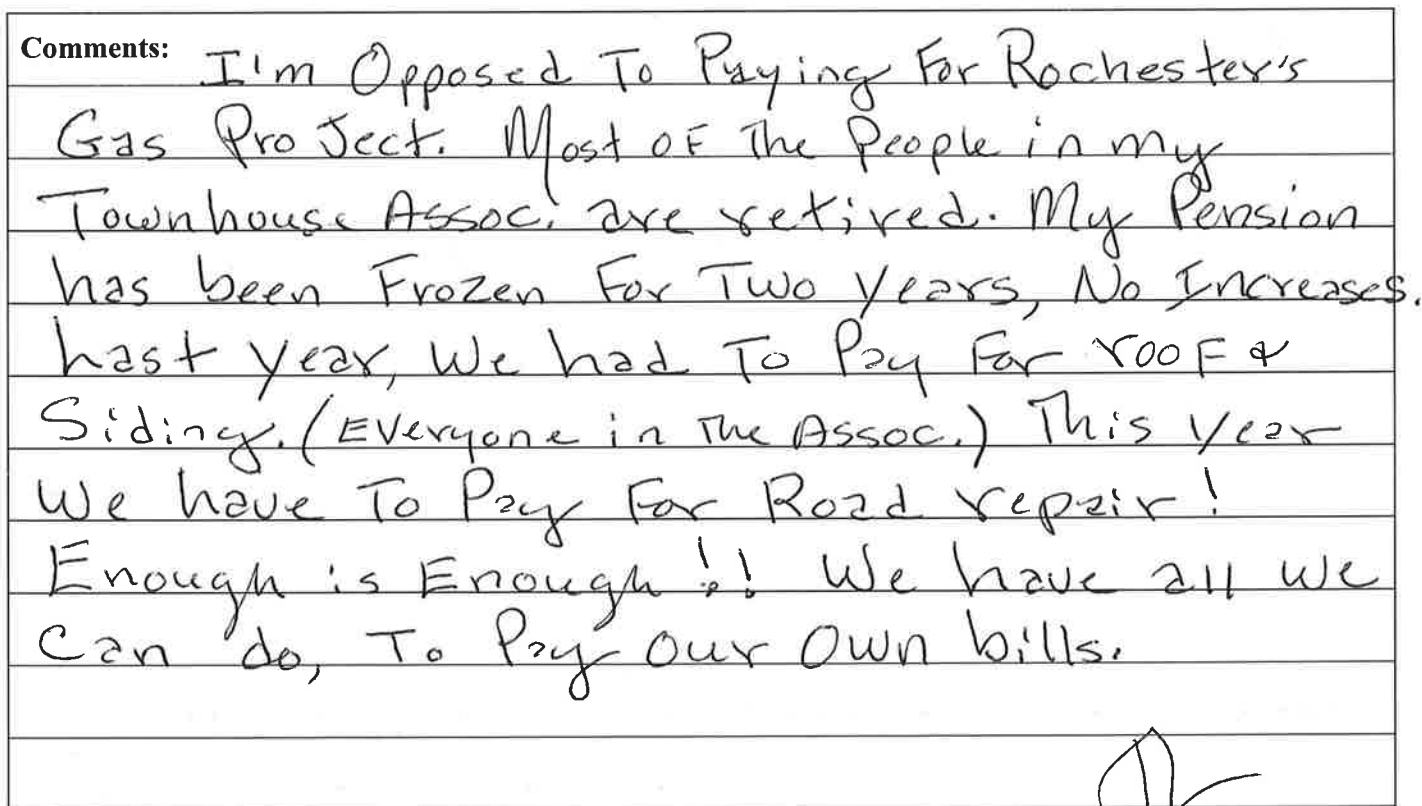 Comments: I'm Opposed To Paying For Rochester's
Gas Project. Most of The People in my
Townhouse Assoc. are retired. My Pension
has been Frozen For Two years, No Increases.
Last year, We had To Pay For roof &
Siding. (Everyone in The Assoc.) This year
We have To Pay For Road repair!
Enough is Enough!! We have all we
can do, To Pay our own bills.